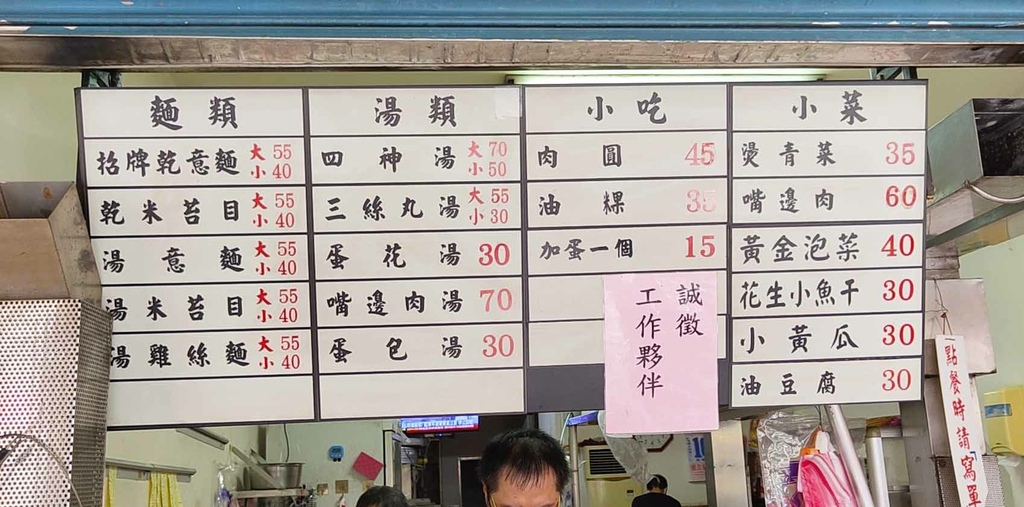 麵類
招牌乾意麵 大55 小40
乾米苔目 大55 小40
湯意麵 大55 小40
湯米苔目 大55 小40
湯雞絲麵 大55 小40
湯類
四神湯 大70 小50
三絲丸湯 大55 小30
蛋花湯 30
嘴邊肉湯 70
蛋包湯 30
小吃
肉圓 45
油粿 35
加蛋一個 15
誠徵
工作夥伴
小菜
燙青菜 35
嘴邊肉 60
黃金泡菜 40
花生小魚干 30
小黃瓜 30
油豆腐 30
點餐時請寫單